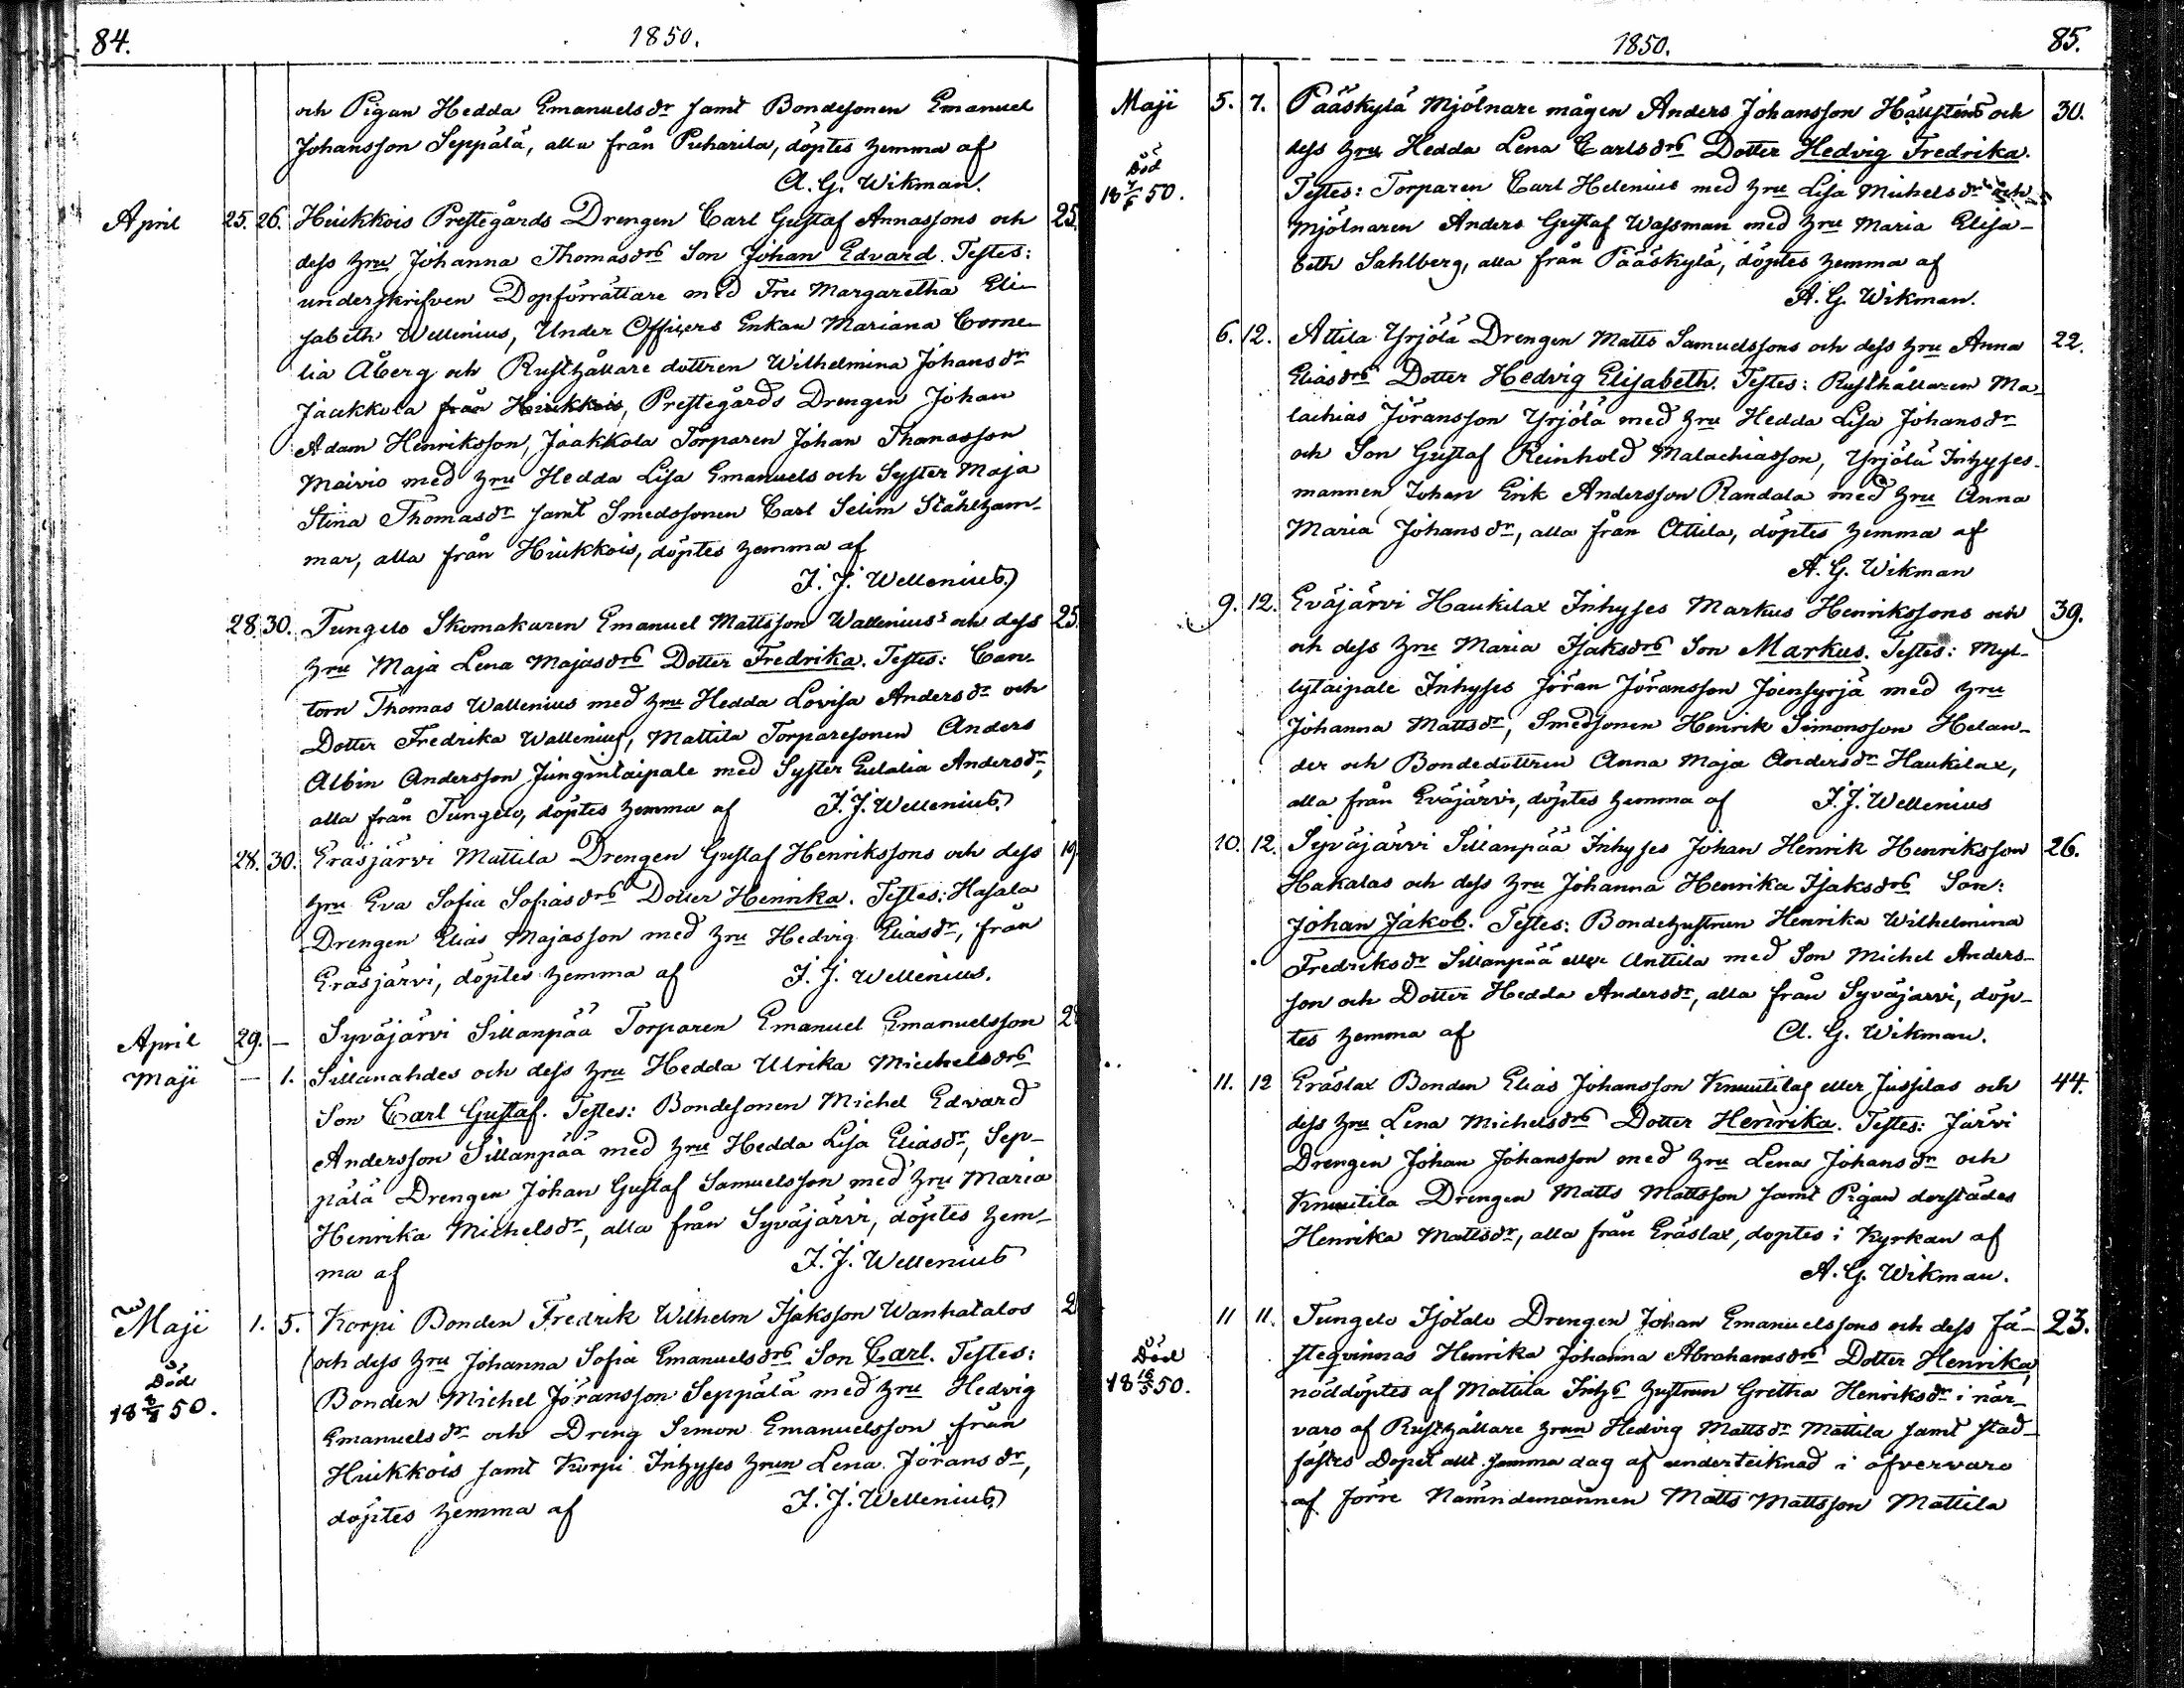 84.
1850.
och Pigan Hedda Emanuelsdr samt Bondesonen Emanuel
Johansson Seppälä, alla från Puharila, döptes hemma af
A. G. Wikman.
April 25. 26. Huikkois Prestegårds Drengen Carl Gustaf Annassons och 25.
dess hru Johanna Thomasdrs Son Johan Edvard. Testes:
underskrifven Dopförrättare med Fru Margaretha Eli-
sabeth Wellenius, Under Officers Enkan Mariana Corne-
lia Åberg och Rusthållare dottren Wilhelmina Johansdr
Jaakkola från Huikkois, Prestegårds Drengen Johan
Adam Henriksson, Jaakkola Torparen Johan Thomasson
Maivio med hru Hedda Lisa Emanuels och Syster Maja
Stina Thomasdr samt Smedssonen Carl Selim Stålham-
mar, alla från Huikkois, döptes hemma af
F. J. Wellenius.
28. 30. Tungelo Skomakaren Emanuel Mattsson Wallenius's och dess 25.
hru Maja Lena Majasdrs Dotter Fredrika. Testes: Can-
torn Thomas Wallenius med hru Hedda Lovisa Andersdr och
Dotter Fredrika Wallenius, Mattila Torparesonen Anders
Albin Andersson Jungintaipale med Syster Eulalia Andersdr,
alla från Tungelo, döptes hemma af F. J. Wellenius.
28. 30. Eräsjärvi Mattila Drengen Gustaf Henrikssons och dess 19.
hru Eva Sofia Sofiasdrs Dotter Henrika. Testes: Hasala
Drengen Elias Majasson med hru Hedvig Eliasdr, från
Eräsjärvi, döptes hemma af F. J. Wellenius.
April 29. — Syväjärvi Sillanpää Torparen Emanuel Emanuelsson 2
Maji — 1. Sillanahdes och dess hru Hedda Ulrika Michelsdrs
Son Carl Gustaf. Testes: Bondesonen Michel Edvard
Andersson Sillanpää med hru Hedda Lisa Eliasdr, Sep-
pälä Drengen Johan Gustaf Samuelsson med hru Maria
Henrika Michelsdr, alla från Syväjärvi, döptes hem-
ma af F. J. Wellenius
Maji 1. 5. Korpi Bonden Fredrik Wilhelm Isaksson Wanhatalos 2
och dess hru Johanna Sofia Emanuelsdrs Son Carl. Testes:
Död
Bonden Michel Jöransson Seppälä med hru Hedvig
18 50.
Emanuelsdr och Dreng Simon Emanuelsson från
Huikkois samt Korpi Inhyses hrun Lena Jöransdr,
döptes hemma af F. J. Wellenius
1850.
85.
Maji 5. 7. Pääskylä Mjölnare mågen Anders Johansson Hällsténs och 30.
dess hru Hedda Lena Carlsdrs Dotter Hedvig Fredrika.
Död
Testes: Torparen Carl Helenius med hru Lisa Michelsdr och
18 50.
Mjölnaren Anders Gustaf Wassman med hru Maria Elisa-
beth Sahlberg, alla från Pääskylä, döptes hemma af
A. G. Wikman.
6. 12. Attila Yrjölä Drengen Matts Samuelssons och dess hru Anna 22.
Eliasdrs Dotter Hedvig Elisabeth. Testes: Rusthållaren Ma-
lachias Jöransson Yrjölä med hru Hedda Lisa Johansdr
och Son Gustaf Reinhold Malachiasson, Yrjölä Inhyses-
mannen Johan Erik Andersson Randala med hru Anna
Maria Johansdr, alla från Attila, döptes hemma af
A. G. Wikman
9. 12. Eväjärvi Haukilax Inhyses Markus Henrikssons och 39.
och dess hru Maria Isaksdrs Son Markus. Testes: Myl-
lytaipale Inhyses Jöran Jöransson Joensyrjä med hru
Johanna Mattsdr, Smedsonen Henrik Simonsson Helan-
der och Bondedottren Anna Maja Andersdr Haukilax,
alla från Eväjärvi, döptes hemma af F. J. Wellenius
10. 12. Syväjärvi Sillanpää Inhyses Johan Henrik Henriksson 26.
Hakalas och dess hru Johanna Henrika Isaksdrs Son:
Johan Jakob. Testes: Bondehustrun Henrika Wilhelmina
Fredriksdr Sillanpää eller Anttila med Son Michel Anders-
son och Dotter Hedda Andersdr, alla från Syväjärvi, döp-
tes hemma af A. G. Wikman.
11. 12 Eräslax Bonden Elias Johansson Knuutilas eller Jussilas och 44.
dess hru Lena Michelsdrs Dotter Henrika. Testes: Järvi
Drengen Johan Johansson med hru Lena Johansdr och
Knuutila Drengen Matts Mattsson samt Pigan derstädes
Henrika Mattsdr, alla från Eräslax, döptes i Kyrkan af
A. G. Wikman.
11 11. Tungelo Isotalo Drengen Johan Emanuelssons och dess fä- 23.
steqvinnas Henrika Johanna Abrahamsdrs Dotter Henrika,
Död
18 16/5 50.
nöddöptes af Mattila Inhs hustrun Gretha Henriksdr i när-
varo af Rusthållare hrun Hedvig Mattsdr Mattila samt stad-
fästes Dopet allt samma dag af undertecknad i öfvervaro
af förre Nämndemannen Matts Mattsson Mattila